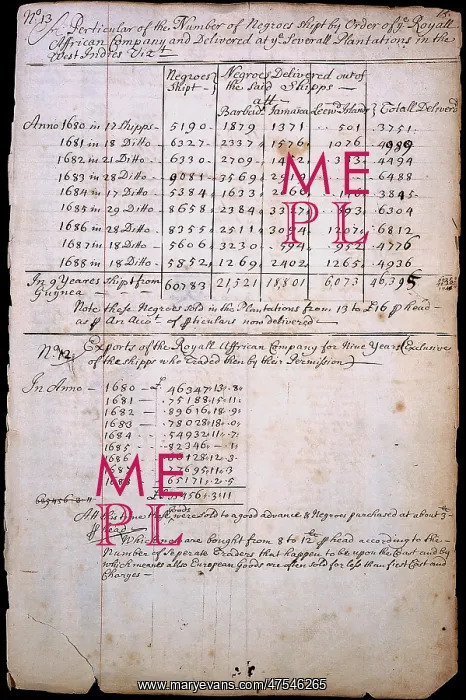 No. 13
A Perticular of the Number of Negroes Shipt by Order of ye Royall
Affrican Company and Delivered at ye Severall Plantations in the
West Indies Vizt
Negroes Shipt Negroes Delivered out of the said Shipps att
Barbados Jamaica Leew Islands Totall Deliverd
Anno 1680 in 17 Shipps 5190 1879 1371 501 3751
1681 in 18 Ditto 6327 2337 1576 1076 4989
1682 in 21 Ditto 6330 2709 4494
1683 in 28 Ditto 9081 3569 6488
1684 in 17 Ditto 5384 1633 3845
1685 in 29 Ditto 8658 2384 3327 593 6304
1686 in 28 Ditto 8355 2511 6812
1687 in 18 Ditto 5606 3230 594 952 4776
1688 in 18 Ditto 5852 1269 2402 1265 4936
In 9 Yeares Shipt from Guynea 60783 21521 18801 6073 46395
Note these Negroes sold in the Plantations from 13 to £16 p head
as p An Accot of pticulars now delivered
No. 12 Exports of the Royall Affrican Company for Nine Years (Exclusive
of the shipps who Traded then by their Permission)
In Anno 1680 £ 46347:13:8
1681 75188:15:11
1682 89616:18:9
1683 78028:18:0
1684 54932:11:7
1685 82346 1
1686 12:3
77695:11:3
65171:2:5
456:3:11
were sold to a good advance & Negroes purchased at about 3
p head
Which now are bought from 8 to 12 p head according to the
Number of Seperate Traders that happen to be upon the Coast and by
which meanes also European Goods are often sold for less than first Cost and
Charges
ME
PL
ME
PL
www.maryevans.com/47546265